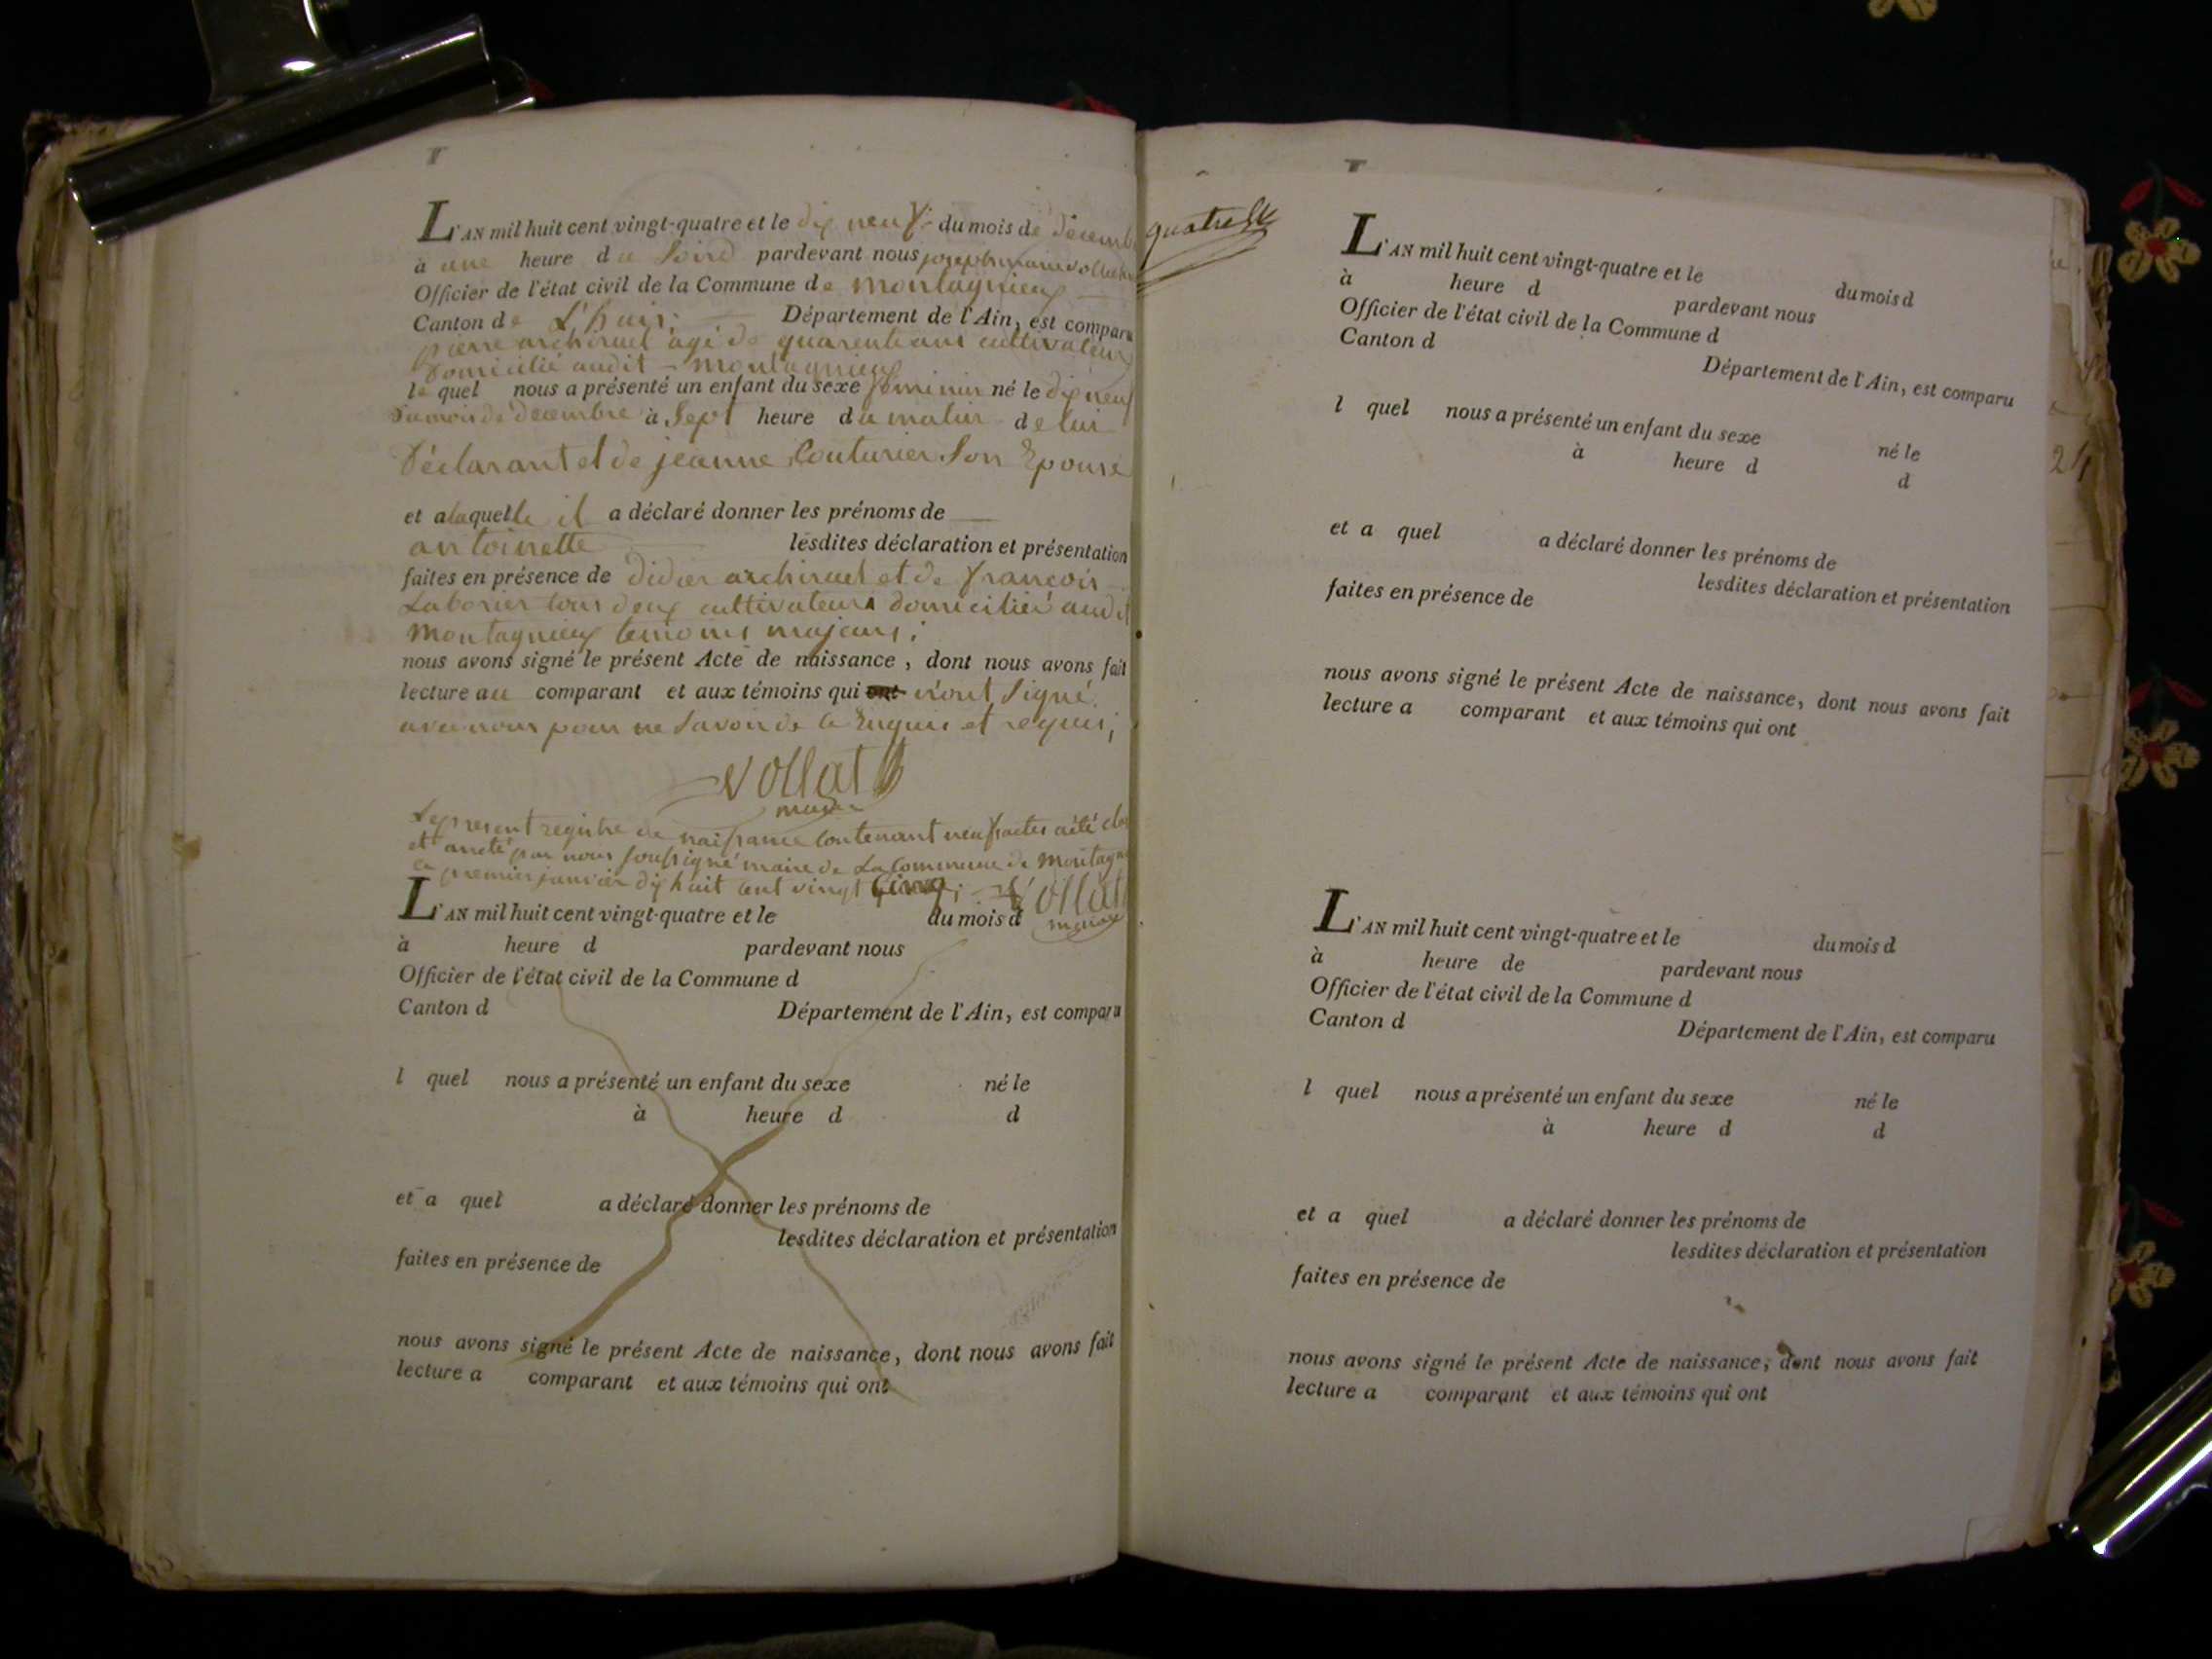 L'AN mil huit cent vingt-quatre et le dix neuf du mois de decemb
à une heure du Soird pardevant nous joseph marie vollat
Officier de l'état civil de la Commune de Montagnieux
Canton de L'huis; Département de l'Ain, est comparu
pierre archiruel agé de quarente ans cultivateur
domicilié audit - montagnieux
le quel nous a présenté un enfant du sexe feminin né le dix neuf
du mois de decembre à Sept heure du matin de lui
Déclarant et de jeanne Couturier Son Epouse
et alaquelle il a déclaré donner les prénoms de
antoinette lesdites déclaration et présentation
faites en présence de didier archiruel et de françois
Laborier tous deux cultivateurs domicilié audit
Montagnieux temoins majeurs;
nous avons signé le présent Acte de naissance, dont nous avons fait
lecture au comparant et aux témoins qui ont n'ont Signé
avec nous pour ne Savoir de ce Enquis et requis;
Vollat
maire
Le present registre de naissance contenant neuf actes a été clos
et arreté par nous soussigné maire de La Commune de Montagn
ce premier janvier dix huit cent vingt Cinq; Vollat
maire
L'AN mil huit cent vingt-quatre et le du mois d
à heure d pardevant nous
Officier de l'état civil de la Commune d
Canton d Département de l'Ain, est comparu
l quel nous a présenté un enfant du sexe né le
à heure d d
et a quel a déclaré donner les prénoms de
lesdites déclaration et présentation
faites en présence de
nous avons signé le présent Acte de naissance, dont nous avons fait
lecture a comparant et aux témoins qui ont
L'AN mil huit cent vingt-quatre et le du mois d
à heure d pardevant nous
Officier de l'état civil de la Commune d
Canton d Département de l'Ain, est comparu
l quel nous a présenté un enfant du sexe né le
à heure d d
et a quel a déclaré donner les prénoms de
lesdites déclaration et présentation
faites en présence de
nous avons signé le présent Acte de naissance, dont nous avons fait
lecture a comparant et aux témoins qui ont
L'AN mil huit cent vingt-quatre et le du mois d
à heure de pardevant nous
Officier de l'état civil de la Commune d
Canton d Département de l'Ain, est comparu
l quel nous a présenté un enfant du sexe né le
à heure d d
et a quel a déclaré donner les prénoms de
lesdites déclaration et présentation
faites en présence de
nous avons signé le présent Acte de naissance, dont nous avons fait
lecture a comparant et aux témoins qui ont